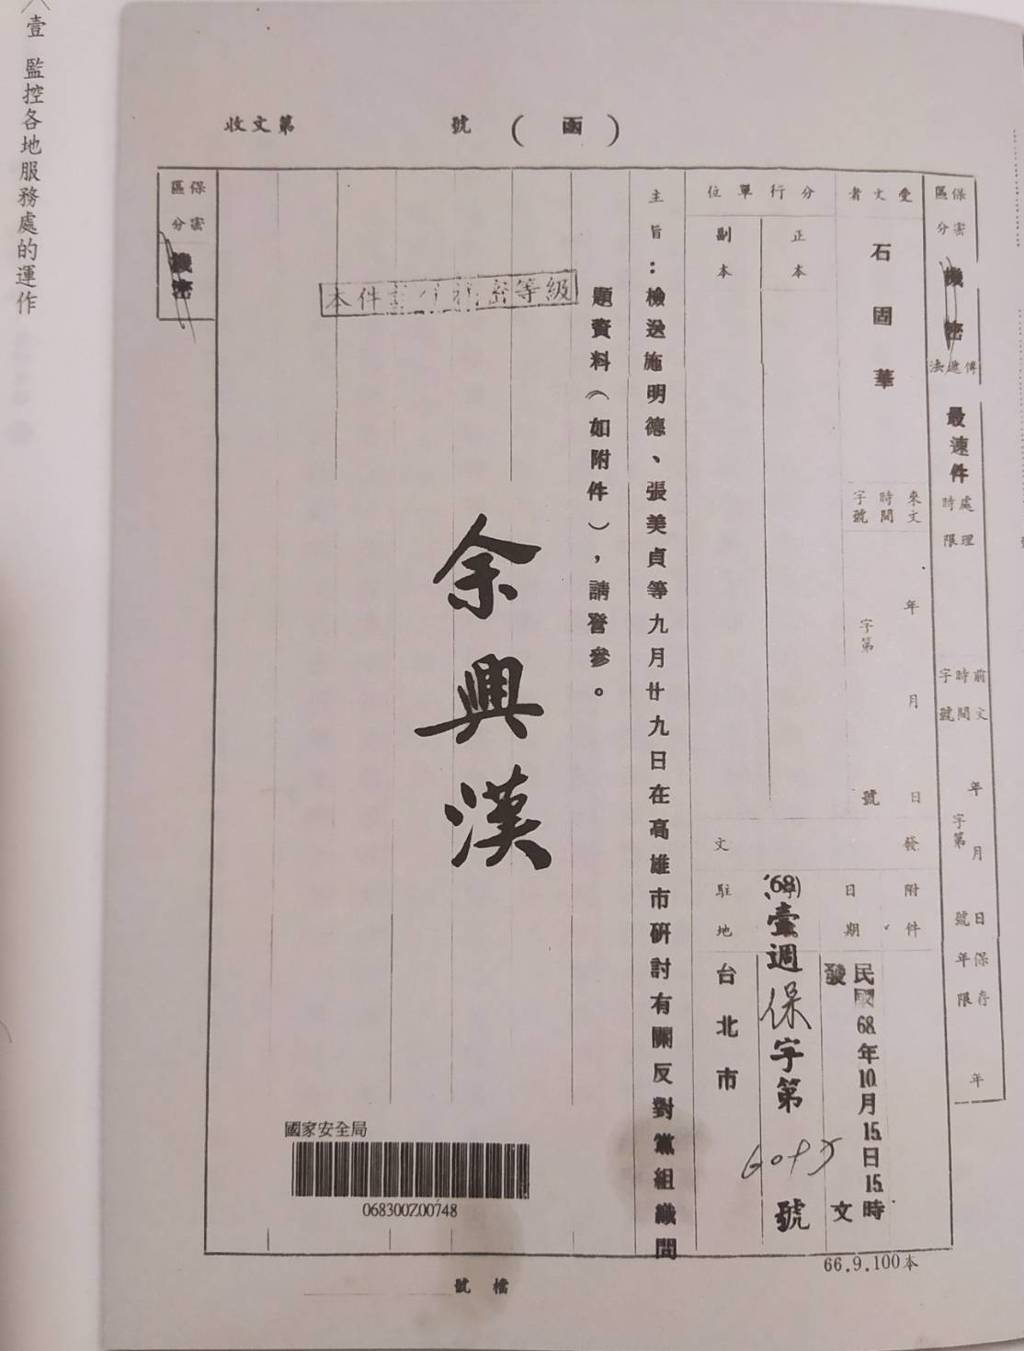 壹 監控各地服務處的運作
收文第 號 (函)
保密區分
機密
傳遞法
最速件
處理時限
前文時間字號
年 月 日
字第 號
保存年限
年
受文者
石固華
來文時間字號
年 月 日
字第 號
分行單位
正本
副本
發文
附件
日期
駐地
民國68年10月15日15時
發文
(68)壹週保字第
號
台北市
主旨:檢送施明德、張美貞等九月廿九日在高雄市研討有關反對黨組織問
題資料(如附件),請詧參。
余興漢
本件 密等級
保密區分
機密
國家安全局
068300Z00748
檔號
66.9.100本